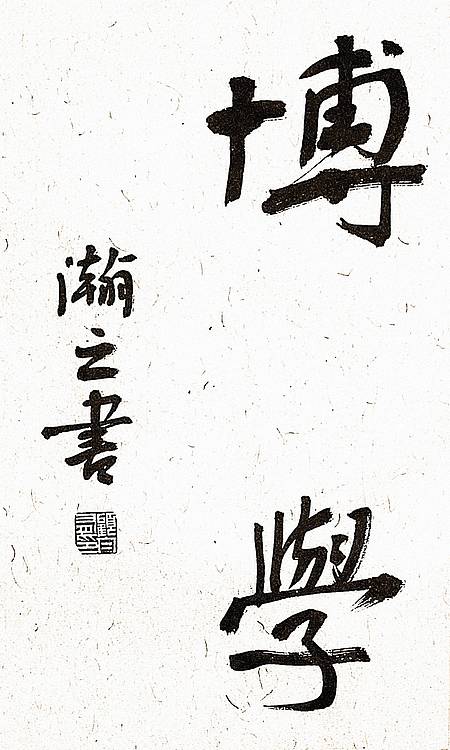 博學
瀚之書